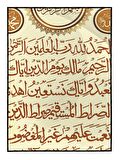 الحمد لله رب العالمين
الرحيم مالك يوم الدين اياك
نعبد واياك نستعين اهدنا
الصراط المستقيم صراط الذين
انعمت عليهم غير المغضوب